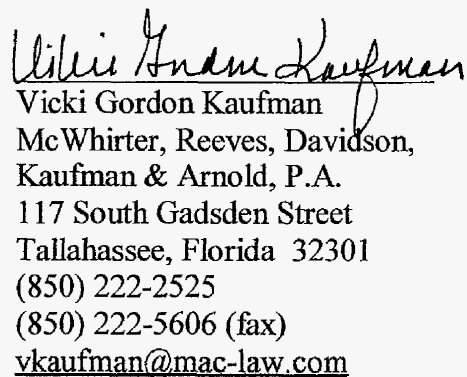 Vicki Gordon Kaufman
Vicki Gordon Kaufman
McWhirter, Reeves, Davidson,
Kaufman & Arnold, P.A.
117 South Gadsden Street
Tallahassee, Florida 32301
(850) 222-2525
(850) 222-5606 (fax)
vkaufman@mac-law.com